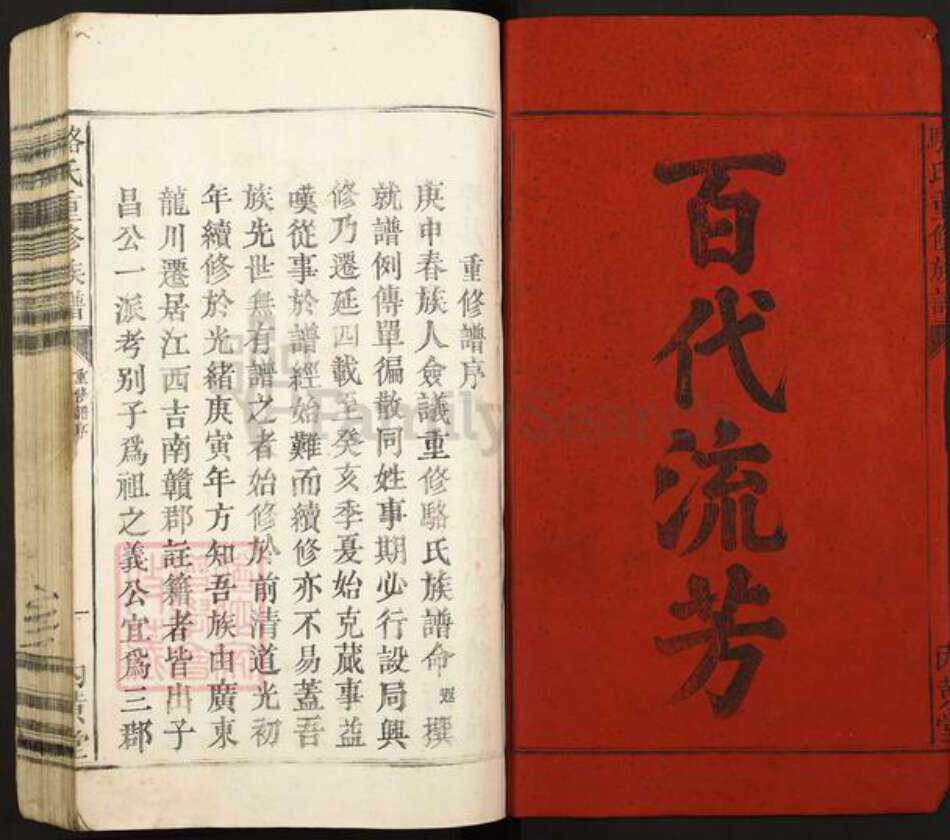 百代流芳
重修譜序
庚申春族人僉議重修駱氏族譜命撰
就譜例傳單徧散同姓事期必行設局興
修乃遷延四載至癸亥季夏始克蕆事益
嘆從事於譜經始難而續修亦不易蓋吾
族先世無有譜之者始修於前清道光初
年續修於光緒庚寅年方知吾族由廣東
龍川遷居江西吉南贛郡註籍者皆出子
昌公一派考别子爲祖之義公宜爲三郡
駱氏重修族譜
重修譜序
一
内黃堂
FamilySearch